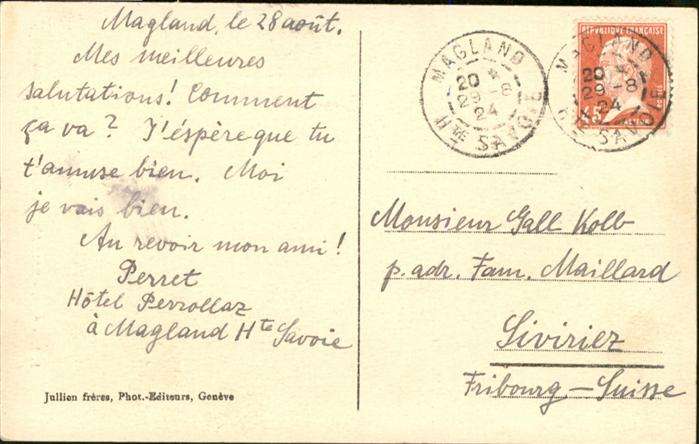 Magland, le 28 août.
Mes meilleures
salutations! Comment
ça va? J'éspère que tu
t'amuse bien. Moi
je vais bien.
Au revoir mon ami!
Perret
Hôtel Perrollaz
à Magland Hte Savoie
Jullien frères, Phot.-Editeurs, Genève
MAGLAND
20 *
29 - 8
24
Hte SAVOIE
REPUBLIQUE FRANÇAISE
45
MAGLAND
20 *
29 - 8
24
Hte SAVOIE
Monsieur Gall Kolb
p. adr. Fam. Maillard
Siviriez
Fribourg - Suisse